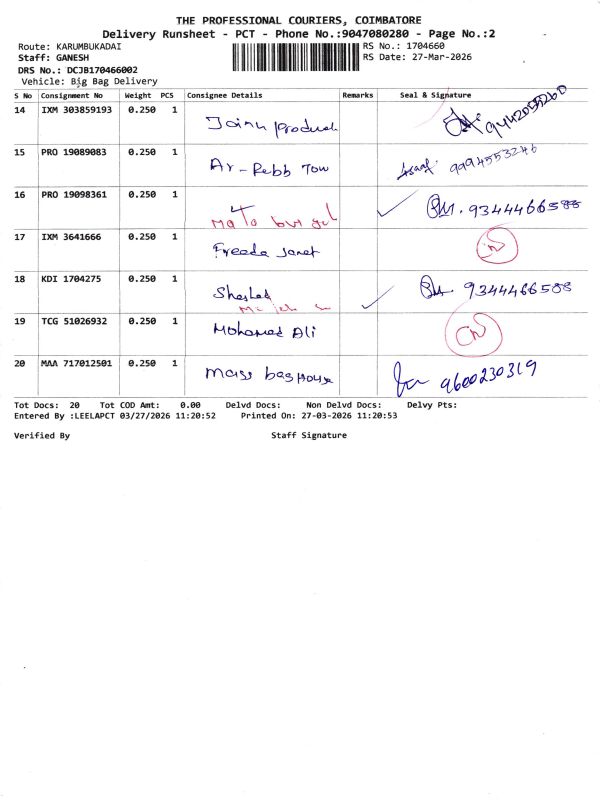 THE PROFESSIONAL COURIERS, COIMBATORE
Delivery Runsheet - PCT - Phone No.:9047080280 - Page No.:2
Route: KARUMBUKADAI RS No.: 1704660
Staff: GANESH RS Date: 27-Mar-2026
DRS No.: DCJB170466002
Vehicle: Big Bag Delivery
S No Consignment No Weight PCS Consignee Details Remarks Seal & Signature
14 IXM 303859193 0.250 1
15 PRO 19089083 0.250 1 Ar-Rebb Tow 9994553246
16 PRO 19098361 0.250 1 9344466588
17 IXM 3641666 0.250 1 Freeda Janet
18 KDI 1704275 0.250 1 9344466588
19 TCG 51026932 0.250 1 Mohamed Ali
20 MAA 717012501 0.250 1 Mass bag House 9600230319
Tot Docs: 20 Tot COD Amt: 0.00 Delvd Docs: Non Delvd Docs: Delvy Pts:
Entered By :LEELAPCT 03/27/2026 11:20:52 Printed On: 27-03-2026 11:20:53
Verified By Staff Signature